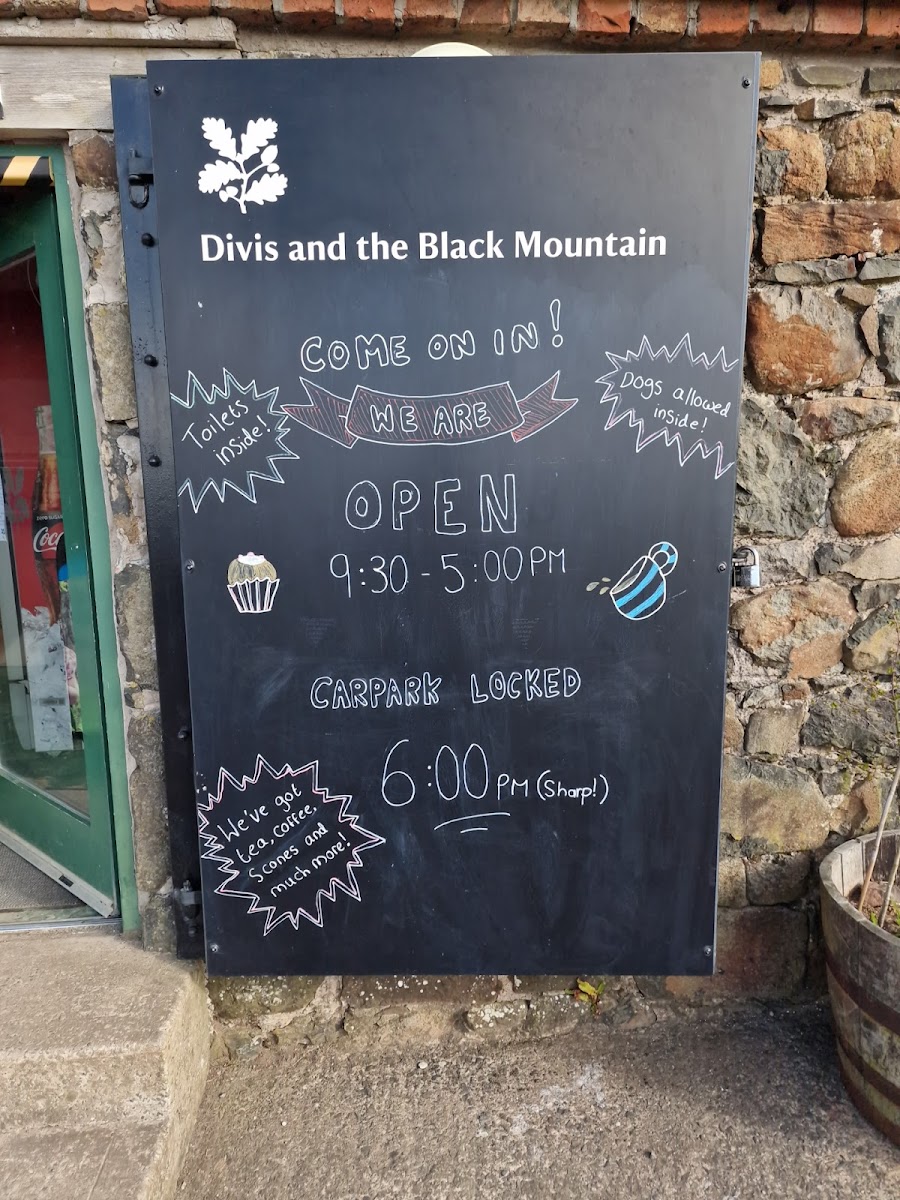 Divis and the Black Mountain
COME ON IN!
WE ARE
Toilets
inside!
Dogs allowed
inside!
OPEN
9:30 - 5:00 PM
CARPARK LOCKED
6:00 PM (Sharp!)
We've got
tea, coffee,
Scones and
much more!